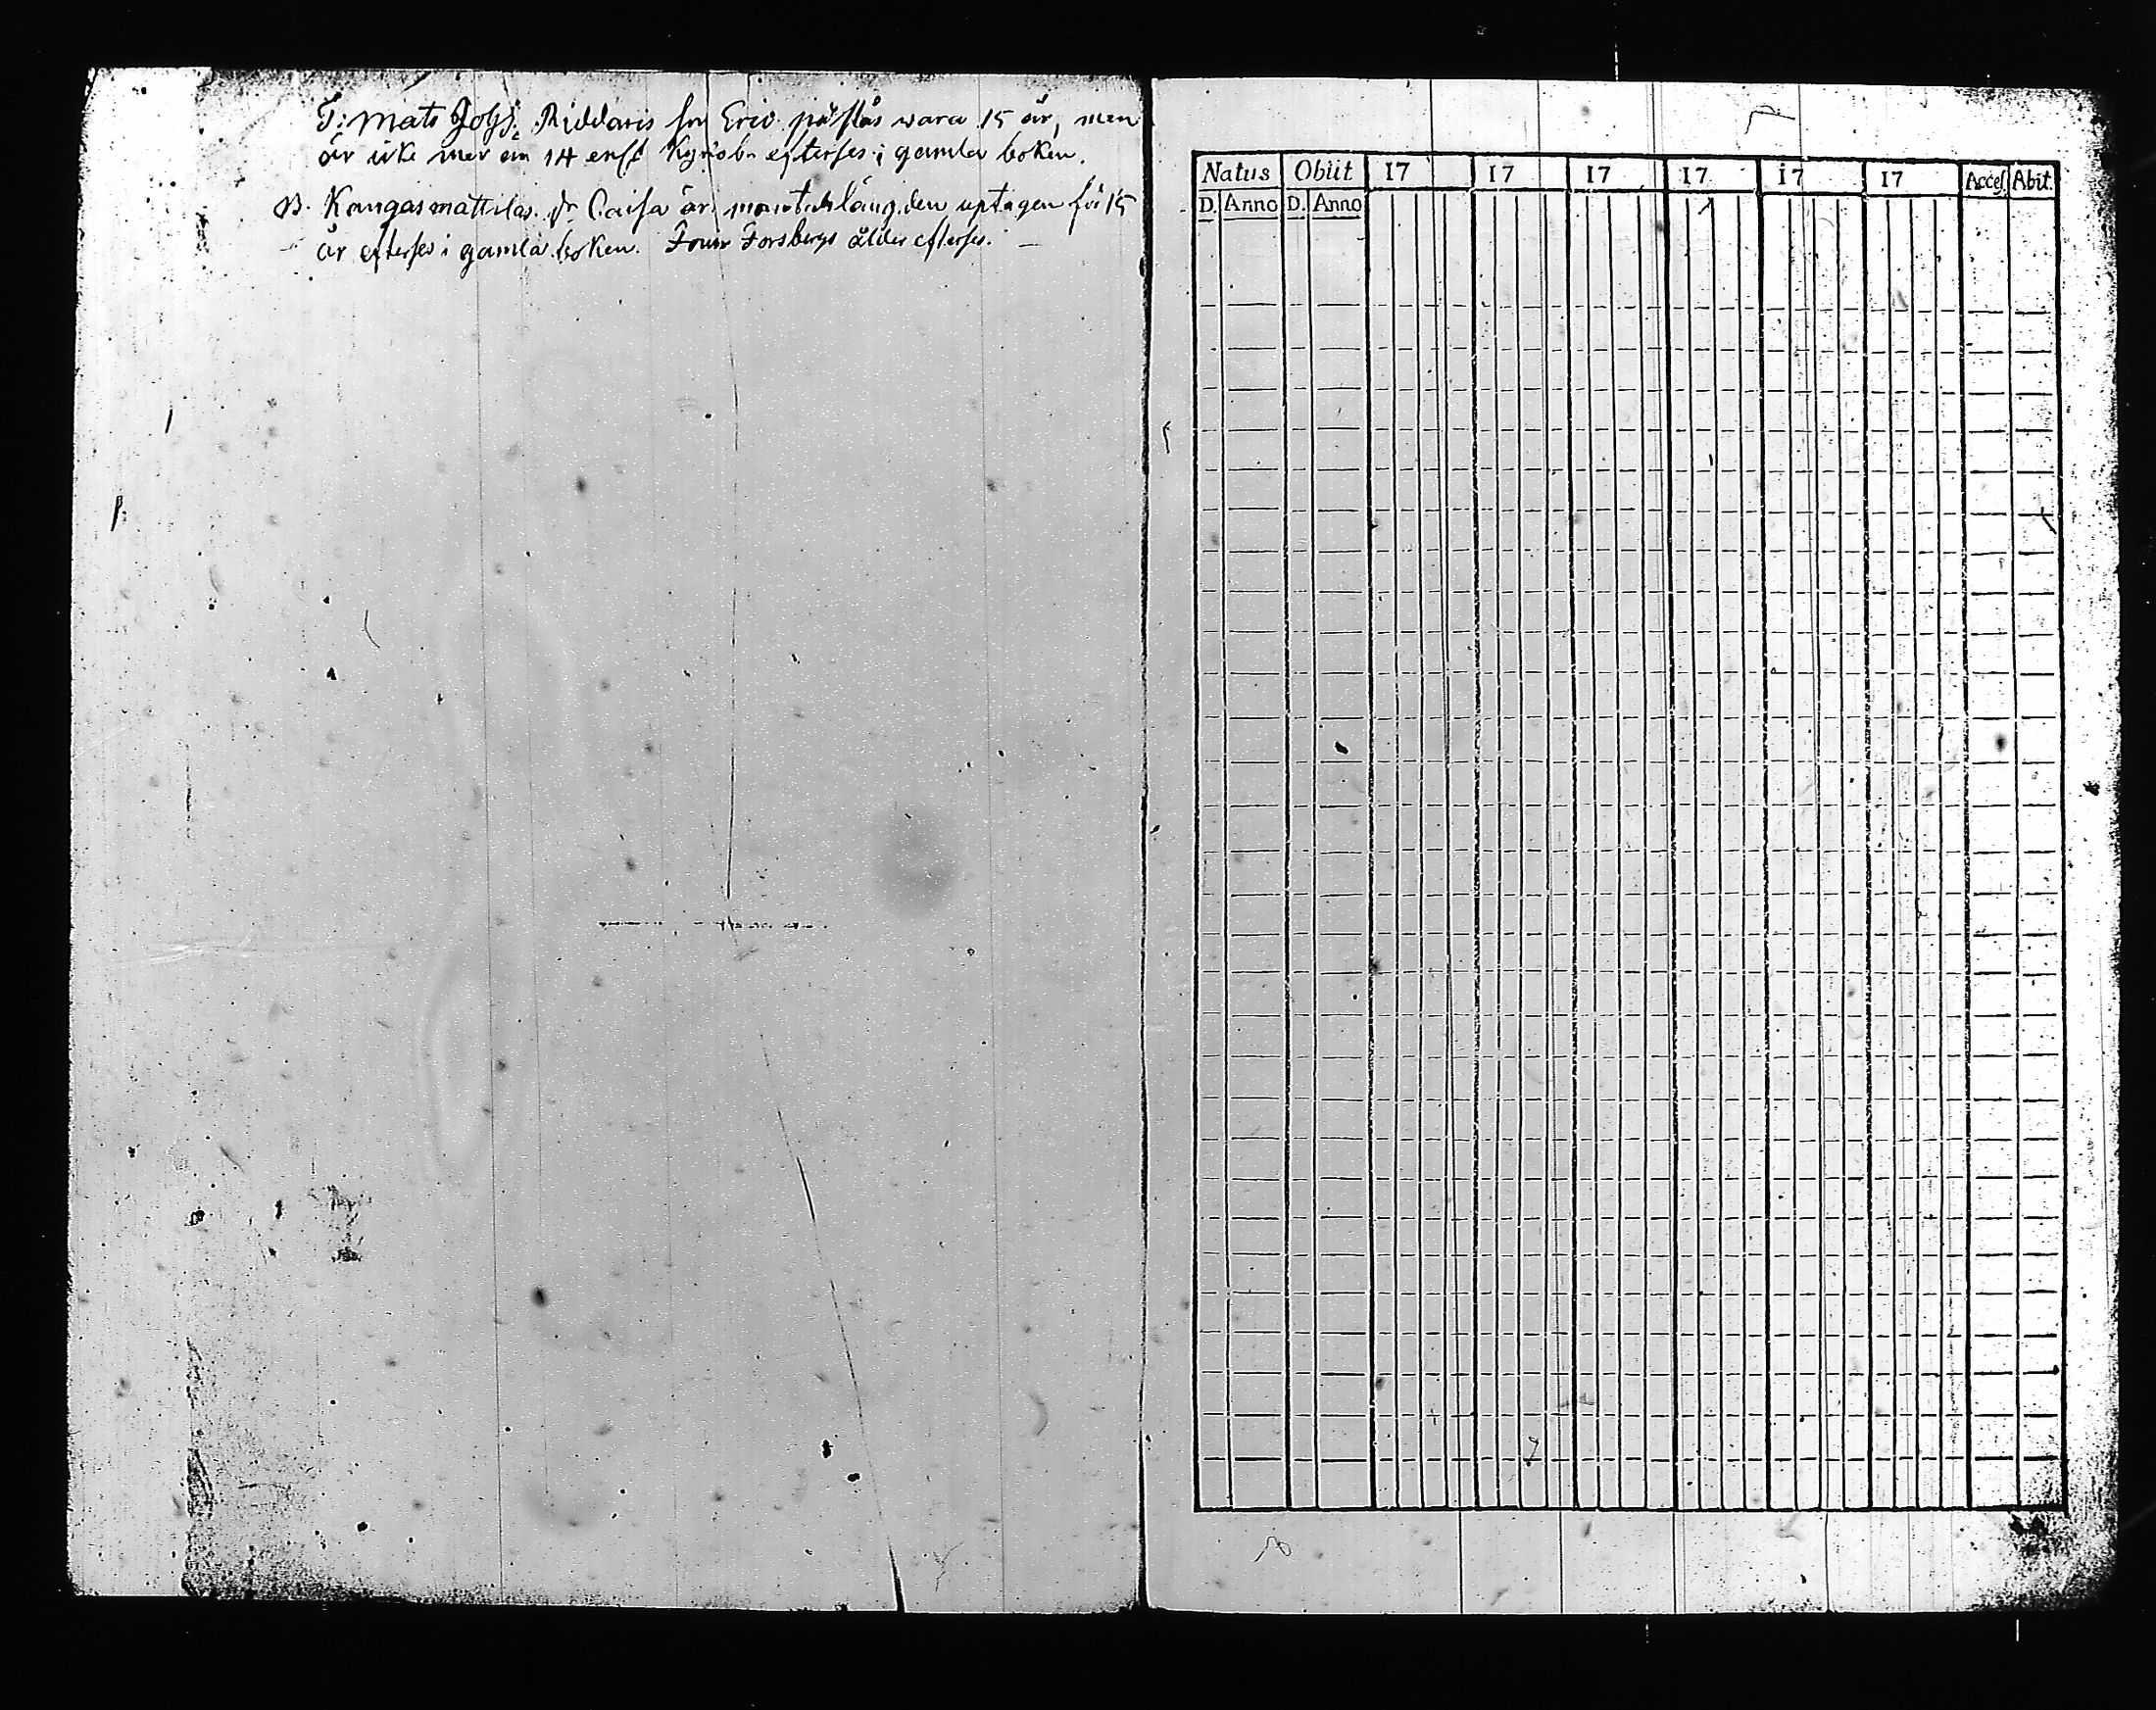 T: Mats Johs: Riddaris son Eric påstås wara 15 år, men
är icke mer än 14 enl. Kyrkob. efterses i gamla boken.
B. Kangasmattilas dr Caisa är i mantalslängden uptagen för 15
år efterses i gamla boken. Forsbergs ålder efterses. —
Natus Obiit 17 17 17 17 17 17 Acces Abit.
D. Anno D. Anno